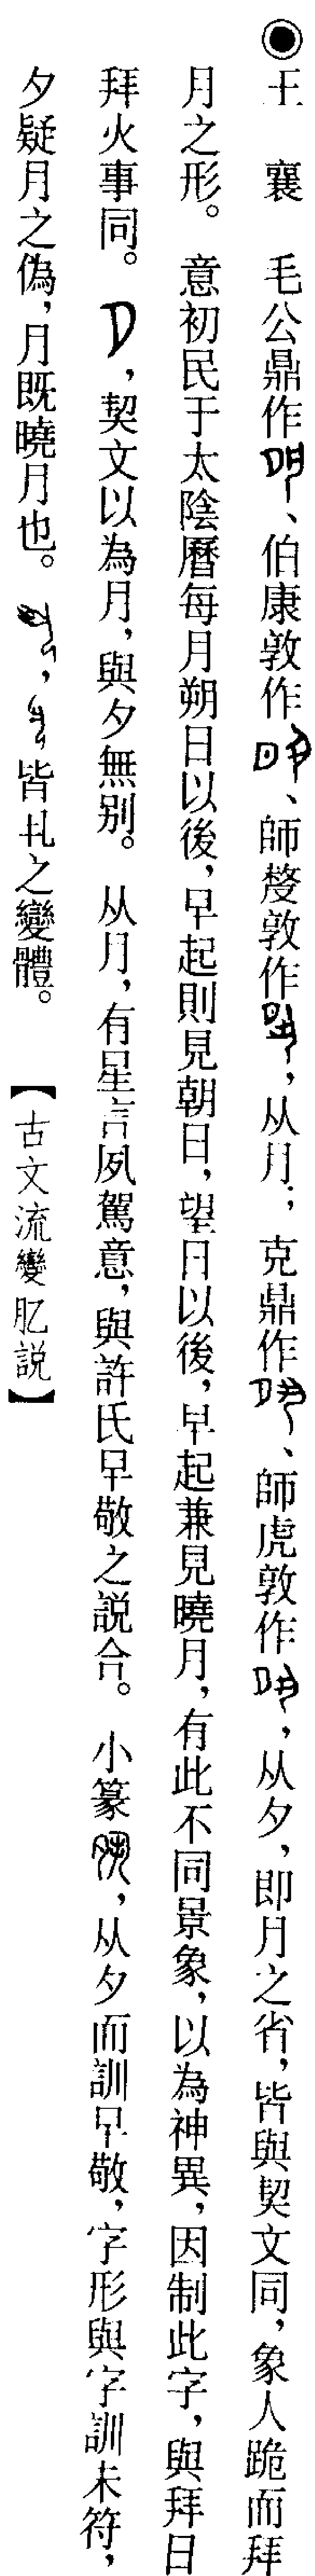 ●王　襄　毛公鼎作、伯康敦作、師嫠敦作，从月；克鼎作、師虎敦作，从夕，即月之省，皆與契文同，象人跪而拜
月之形。意初民于太陰曆每月朔日以後，早起則見朝日，望日以後，早起兼見曉月，有此不同景象，以為神異，因制此字，與拜日
拜火事同。，契文以為月，與夕無别。从月，有星言夙駕意，與許氏早敬之説合。小篆，从夕而訓早敬，字形與字訓未符，
夕疑月之偽，月既曉月也。，皆丮之變體。【古文流變肊説】